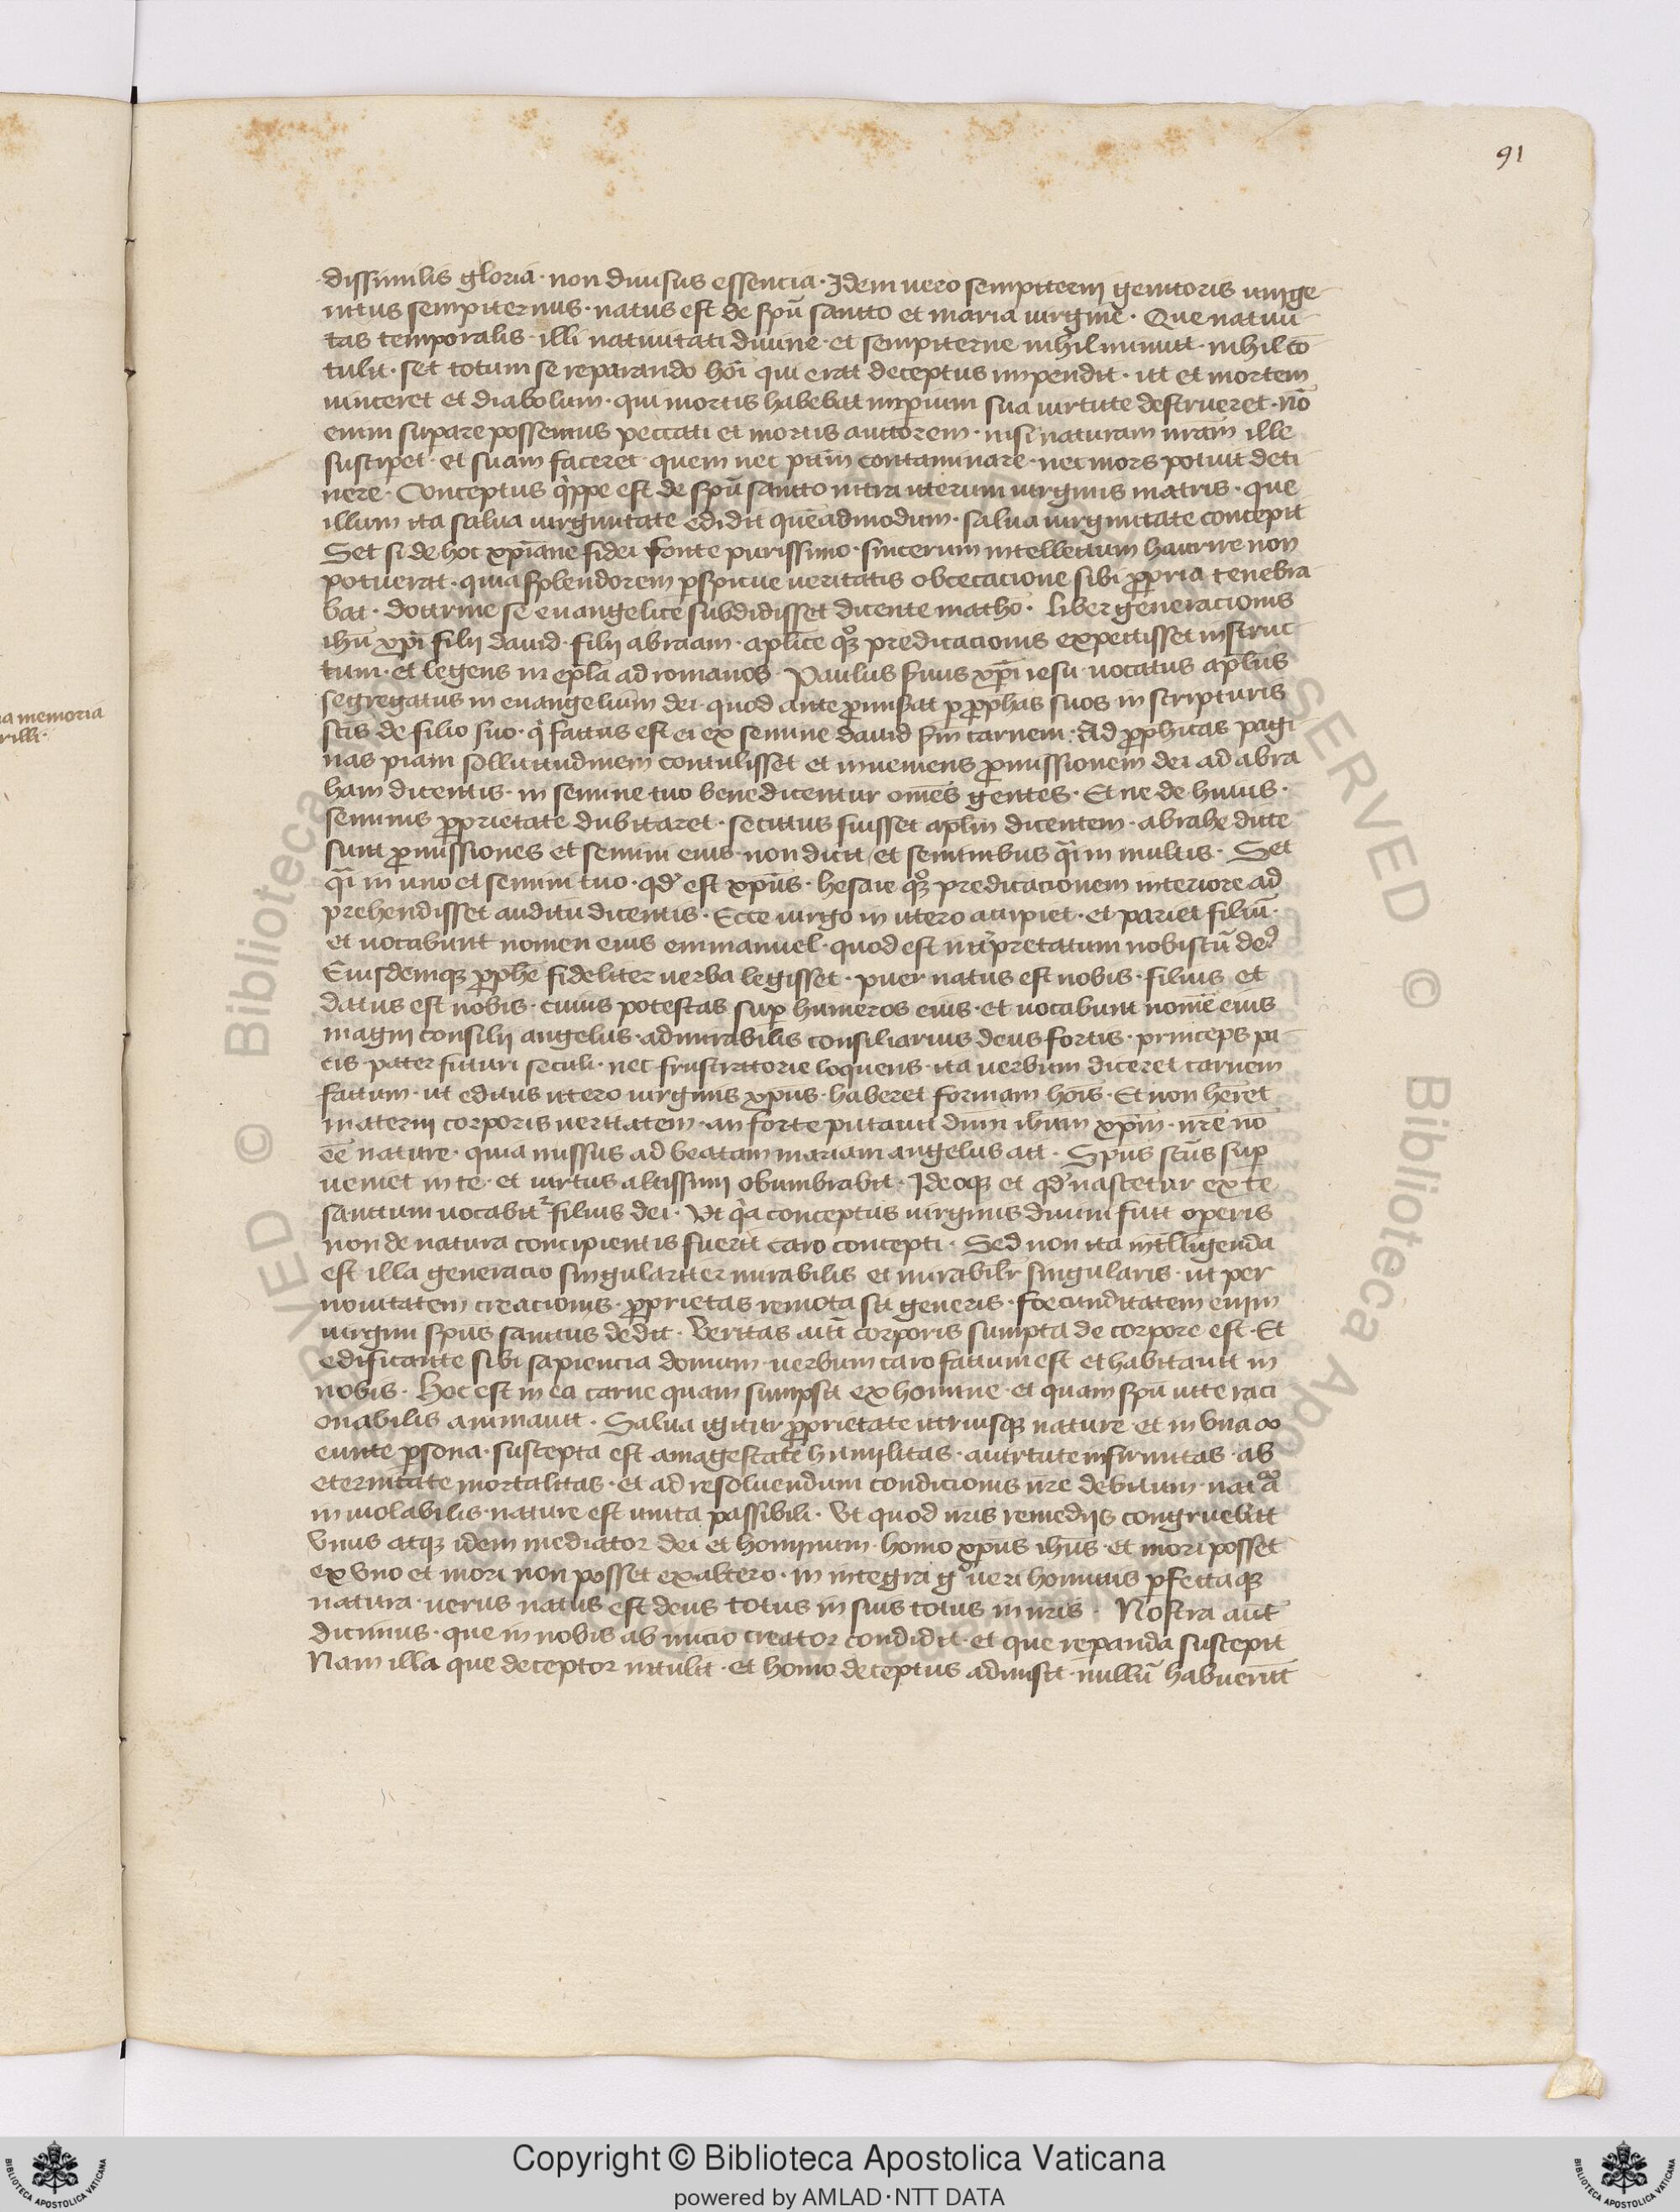 91
dissimilis gloria · non diuisus essencia · Idem uero sempiterni genitoris unige
nitus sempiternus · natus est de spū sancto et maria uirgine · Que natiui
tas temporalis · illi natiuitati diuine · et sempiterne nihil minuit · nihil cō
tulit · set totum se reparando hōi qui erat deceptus impendit · ut et mortem
uinceret et diabolum · qui mortis habebat imperium sua uirtute destrueret · nō
enim supare possemus peccati et mortis auctorem · nisi naturam nrām ille
suscipet · et suam faceret quem nec pctm̄ contaminare · nec mors potuit deti
nere · Conceptus qippe est de spū sancto intra uterum uirginis matris · que
illum ita salua uirginitate edidit quēadmodum · salua uirginitate concepit
Set si de hoc xpīane fidei fonte purissimo · sincerum intellectum haurire non
potuerat · quia splendorem pspicue ueritatis obcecacione sibi ppria tenebra
bat · doctrine se euangelice subdidisset dicente matheō · liber generacionis
ihū xpī filij dauid · filij abraam · aplīce qz predicacionis expetisset instruc
tum · et legens in epl̄a ad romanos · Paulus suus xpī iesu uocatus apl̄us
segregatus in euangelium dei · quod ante pmisat p pphas suos in scripturis
scīs de filio suo · q factus est ei ex semine dauid sm̄ carnem · Ad pphīcas pagi
nas piam sollicitudinem contulisset et inueniens pmissionem dei ad abra
ham dicentis · in semine tuo benedicentur oms̄ gentes · Et ne de huius ·
seminis pprietate dubitaret · secutus fuisset apl̄m dicentem · abrahe dicte
sunt pmissiones et semini eius · non dicit et seminibus qi in multis · Set
qi in uno et semini tuo · qd est xpūs · hesaie qz predicacionem interiore ad
prehendisset auditu dicentis · Ecce uirgo in utero accipiet · et pariet filiū ·
et uocabunt nomen eius emmanuel · quod est intpretatum nobiscū de9
Eiusdemqz pphē fideliter uerba legisset · puer natus est nobis · filius et
datus est nobis · cuius potestas sup humeros eius · et uocabunt nomē eius
magni consilij angelus · admirabilis consiliarius deus fortis · princeps pa
cis · pater futuri seculi · nec frustratorie loquens · ita uerbum diceret carnem
factum · ut editus utero uirginis xpūs · haberet formam hoīs · Et non herēt
materni corporis ueritatem · an forte putauit dn̄m ihm̄ xpm̄ · nr̄e nō
ēē nature · quia missus ad beatam mariam angelus ait · Sps̄ scūs sup
ueniet in te · et uirtus altissimi obumbrabit · Ideoqz et qd nascetur ex te
sanctum uocabit filius dei · Ut qa conceptus uirginis diuini fuit operis
non de natura concipientis fuerit caro concepti · Sed non ita intllīgenda
est illa generacio singulariter mirabilis et mirabilr singularis · ut per
nouitatem creacionis · pprietas remota sit generis · foecunditatem enim
uirgini spūs sanctus dedit · Veritas autē corporis sumpta de corpore est · Et
edificante sibi sapiencia domum · uerbum caro factum est et habitauit in
nobis · Hoc est in ea carne quam sumpsit ex homine · et quam spū uite raci
onabilis animauit · Salua igitur pprietate utriusqz nature · et in vna co
eunte psona · suscepta est a magestate humilitas · a uirtute infirmitas · ab
eternitate mortalitas · et ad resoluendum condicionis nr̄e debitum · natā
inuiolabilis · nature est unita passibili · Vt quod nr̄is remedijs congruebat
Vnus atqz idem mediator dei et hominum · homo xpūs ihūs · et mori posset
ex vno et mori non posset ex altero · in integra g ueri hominis pfectaqz
natura · uerus natus est deus totus in suis totus in nr̄is · Nostra autē
dicimus · que in nobis ab inicio creator condidit · et que repanda suscepit
Nam illa que deceptor intulit · et homo deceptus admisit · nullū habuerūt
a memoria
rilli ·
Copyright © Biblioteca Apostolica Vaticana
powered by AMLAD·NTT DATA